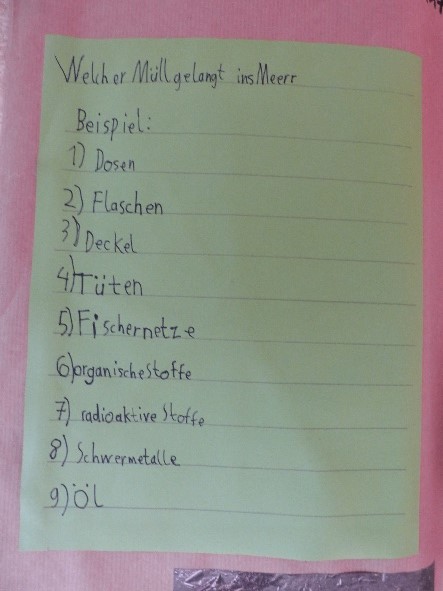 Welcher Müll gelangt ins Meerr
Beispiel:
1) Dosen
2) Flaschen
3) Deckel
4) Tüten
5) Fischernetze
6) organische Stoffe
7) radioaktive Stoffe
8) Schwermetalle
9) Öl